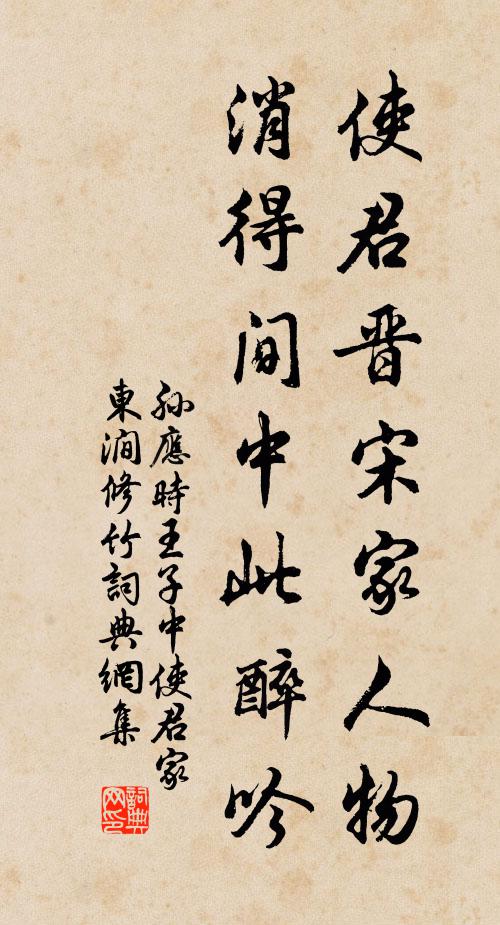 使君晋宋家人物
消得閒中此醉吟
孫應時王子中使君家
東澗修竹詞典網集
詞典网印